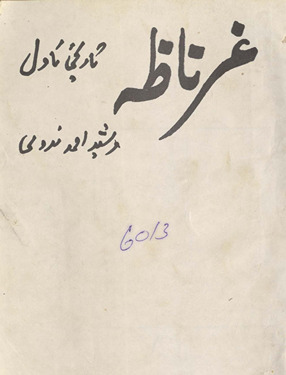 غرناطہ
تاریخی ناول
رشید احمد ندوی
6013